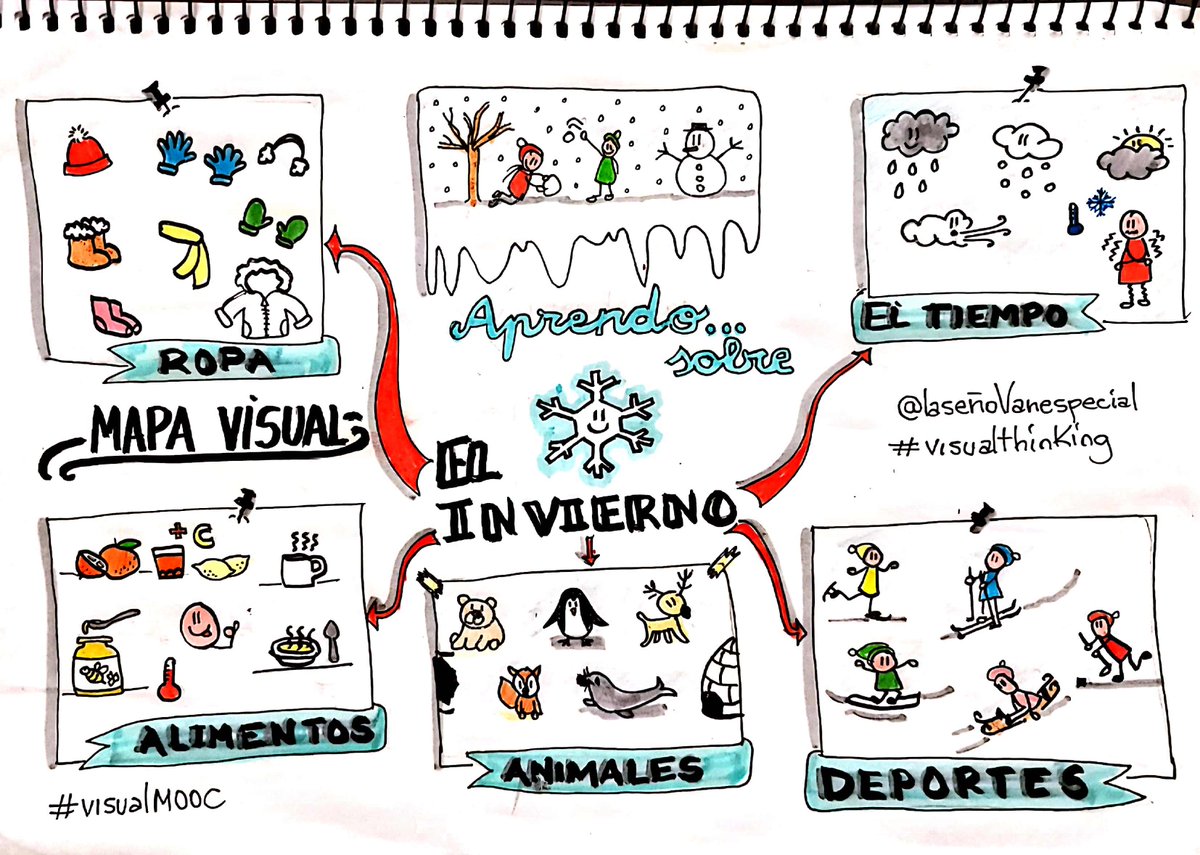 Aprendo...
sobre
EL
INVIERNO
ROPA
EL TIEMPO
MAPA VISUAL
@laseñoVanespecial
#visualthinking
+ C
ALIMENTOS
ANIMALES
DEPORTES
#visualMOOC